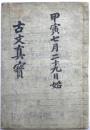 甲寅七月二十九日始
古文真寶